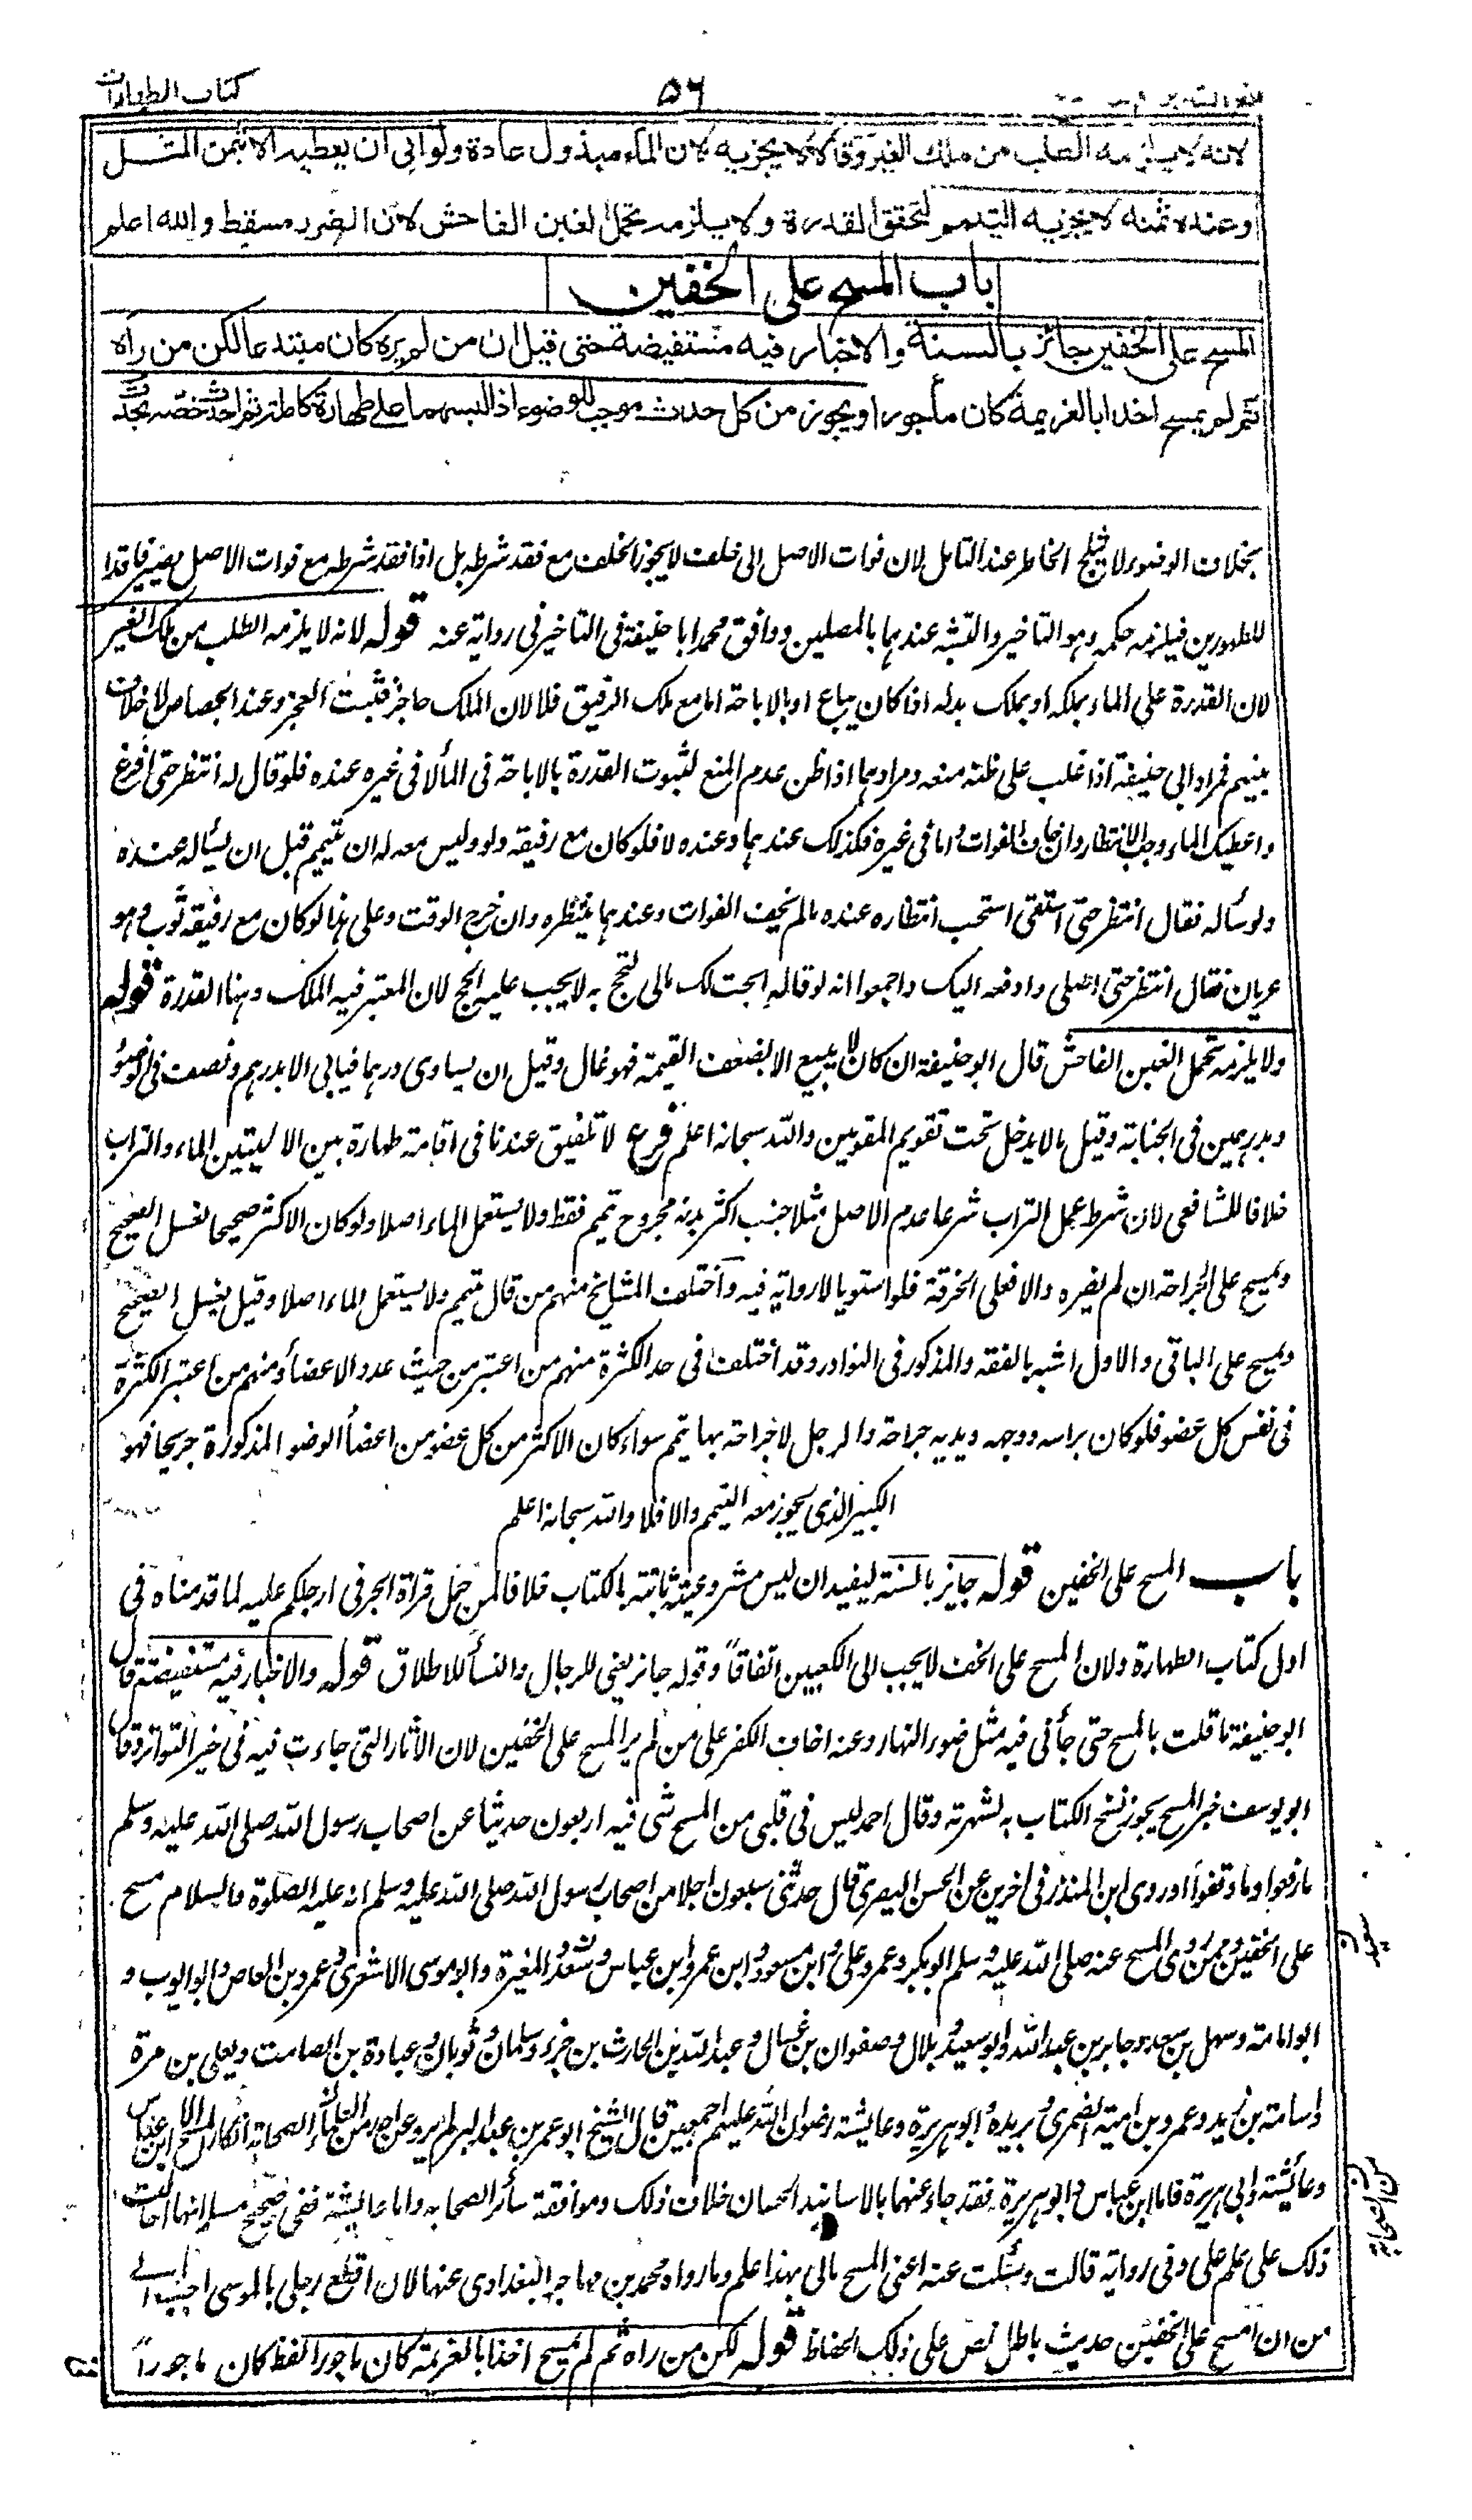 كتاب الطهارات
٥٦
لانه لا يلزمه الطلب من ملك الغير وقالا لا يجزيه لان الماء مبذول عادة ولو ابى ان يعطيه الا بثمن المثل
وعنده ثمنه لا يجزيه التيمم لتحقق القدرة ولا يلزمه تحمل الغبن الفاحش لان الضرر مسقط والله اعلم
باب المسح على الخفين
المسح على الخفين جائز بالسنة والاخبار فيه مستفيضة حتى قيل ان من لم يره كان مبتدعا لكن من رأه
ثم لم يمسح اخذا بالعزيمة كان مأجورا ويجوز من كل حدث موجب للوضوء اذا لبسهما على طهارة كاملة ثم احدث خصه بحدث
بخلاف الوضوء لا يختلج الخاطر عند التامل لان فوات الاصل الى خلف لا يجوز الخلف مع فقد شرطه بل اذا فقد شرطه مع فوات الاصل يصير فاقدا
للطهورين فيلزمه حكمه وهو التاخير والتشبه عندهما بالمصلين ووافق محمد ابا حنيفة فى التاخير فى رواية عنه قوله لانه لا يلزمه الطلب من ملك الغير
لان القدرة على الماء بملكه او بملك بدله اذا كان يباع او بالاباحة اما مع ملك الرفيق فلا لان الملك حاجز فثبت العجز وعند الجصاص لا خلاف
بينهم فمراد ابى حنيفة اذا غلب على ظنه منعه ومرادهما اذا ظن عدم المنع لثبوت القدرة بالاباحة فى الماء لا فى غيره عنده فلو قال له انتظر حتى افرغ
واعطيك الماء وجب الانتظار وان خاف الفوات واما فى غيره فكذلك عندهما وعنده لا فلو كان مع رفيقه دلو وليس معه له ان يتيمم قبل ان يسأله عنده
ولو سأله فقال انتظر حتى استقى استحب انتظاره عنده مالم يخف الفوات وعندهما ينتظره وان خرج الوقت وعلى هذا لو كان مع رفيقه ثوب وهو
عريان فقال انتظر حتى اصلى وادفعه اليك واجمعوا انه لو قال له ابحت لك مالى لتحج به لا يجب عليه الحج لان المعتبر فيه الملك وهنا القدرة قوله
ولا يلزمه تحمل الغبن الفاحش قال ابو حنيفة ان كان لا يبيع الا بضعف القيمة فهو غال وقيل ان يساوى درهما فيابى الا بدرهم ونصف فى الوضوء
وبدرهمين فى الجنابة وقيل مالا يدخل تحت تقويم المقومين والله سبحانه اعلم فرع لا تلفيق عندنا فى اقامة طهارة بين الاليتين الماء والتراب
خلافا للشافعى لان شرط عمل التراب شرعا عدم الاصل مثلا جنب اكثر بدنه مجروح تيمم فقط ولا يستعمل الماء اصلا ولو كان الاكثر صحيحا لغسل الصحيح
ويمسح على الجراحة ان لم يضره والا فعلى الخرقة فلو استويا لا رواية فيه واختلف المشايخ منهم من قال تيمم ولا يستعمل الماء اصلا وقيل يغسل الصحيح
ويمسح على الباقى والاول اشبه بالفقه والمذكور فى النوادر وقد اختلف فى حد الكثرة منهم من اعتبر من حيث عدد الاعضاء ومنهم من اعتبر الكثرة
فى نفس كل عضو فلو كان براسه ووجهه ويديه جراحة والرجل لا جراحة بها يتيمم سواء كان الاكثر من كل عضو من اعضاء الوضوء المذكورة جريحا فهو
الكبير الذى يجوز معه التيمم والا فلا والله سبحانه اعلم
باب المسح على الخفين قوله جايز بالسنة ليفيد ان ليس مشروعيته ثابتة بالكتاب خلافا لمن حمل قراة الجر فى ارجلكم عليه لما قدمناه فى
اول كتاب الطهارة ولان المسح على الخف لا يجب الى الكعبين اتفاقا وقوله جائز يعنى للرجال والنساء للاطلاق قوله والاخبار فيه مستفيضة قال
ابو حنيفة ما قلت بالمسح حتى جأنى فيه مثل ضوء النهار وعنه اخاف الكفر على من لم ير المسح على الخفين لان الاثار التى جاءت فيه فى خبر التواتر وقال
ابو يوسف خبر المسح يجوز نسخ الكتاب به لشهرته وقال احمد ليس فى قلبى من المسح شى فيه اربعون حديثا عن اصحاب رسول الله صلى الله عليه وسلم
ما رفعوا وما وقفوا وروى ابن المنذر فى اخرين عن الحسن البصرى قال حدثنى سبعون رجلا من اصحاب رسول الله صلى الله عليه وسلم انه عليه الصلوة والسلام مسح
على الخفين وممن روى المسح عنه صلى الله عليه وسلم ابو بكر وعمر وعلى وابن مسعود وابن عمر وابن عباس وسعد والمغيرة وابو موسى الاشعرى وعمرو بن العاص وابو ايوب و
ابو امامة وسهل بن سعد وجابر بن عبد الله وابو سعيد وبلال وصفوان بن عسال وعبد الله بن الحارث بن جزء وسلمان وثوبان وعبادة بن الصامت ويعلى بن مرة
واسامة بن زيد وعمرو بن امية الضمرى وبريدة وابو هريرة وعايشة رضوان الله عليهم اجمعين قال الشيخ ابو عمر بن عبد البر لم يرو عن احد من الصحابة انكار المسح الا ابن عباس
وعائشة وابى هريرة فاما ابن عباس وابو هريرة فقد جاء عنهما بالاسانيد الحسان خلاف ذلك وموافقة سائر الصحابه واما عايشة ففى صحيح مسلم انها احالت
ذلك على علم على وفى رواية قالت وسئلت عنه اعنى المسح مالى بهذا علم وما رواه محمد بن مهاجر البغدادى عنها لان اقطع رجلى بالموسى احب الى
من ان امسح على الخفين حديث باطل نص على ذلك الحفاظ قوله لكن من راه ثم لم يمسح اخذا بالعزيمة كان ماجورا لفظ كان ماجورا